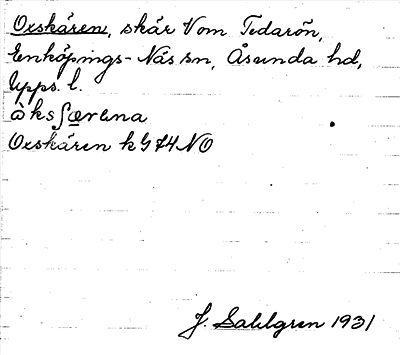 Oxskären, skär V om Tedarön,
Enköpings-Näs sn, Åsunda hd,
Upps. l.
ò̀ksʃæ̠rɛna
Oxskären k 974 NO
J. Sahlgren 1931